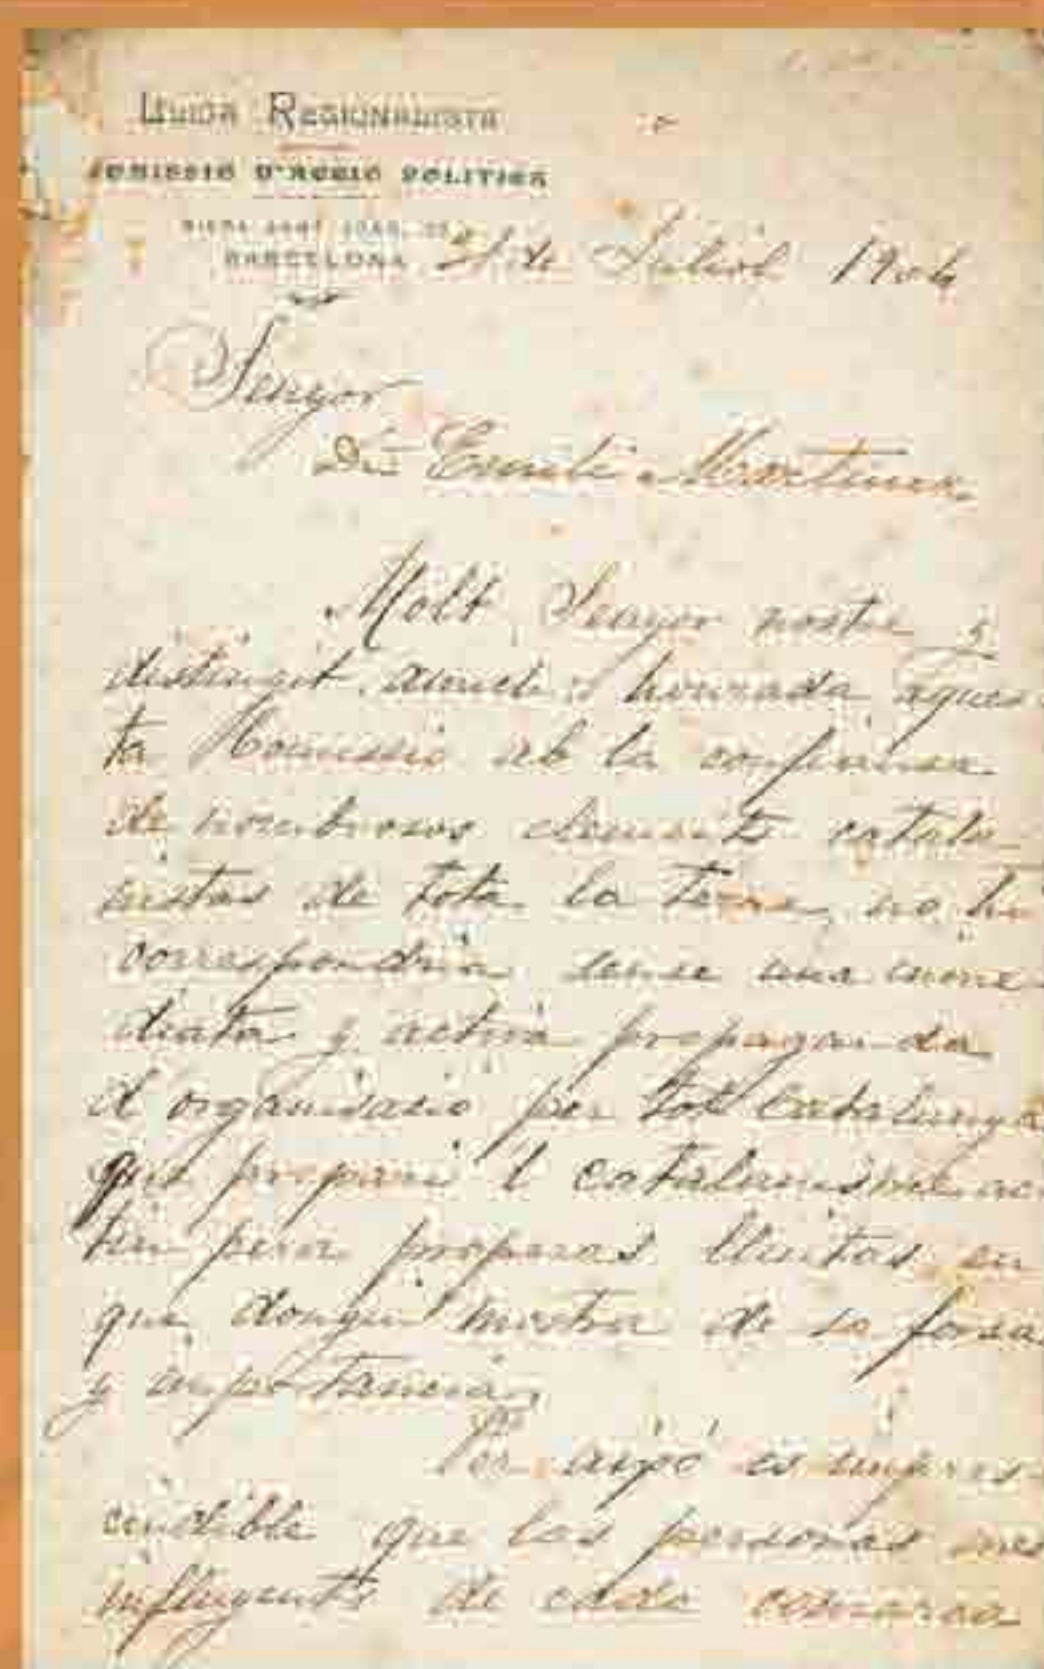 LLIGA REGIONALISTA
COMISSIÓ D'ACCIÓ POLÍTICA
BARCELONA
de Juliol 1904
Senyor
Dn Emili Martinez
Molt Senyor nostre y
distingit amich: honrada aques-
ta Comissió ab la confiansa
de nombrosos elements catala-
nistas de tota la terra, no hi
correspondria sense una inme-
diata y activa propaganda
d'organisació per tot Catalunya
que prepari l catalanisme ac-
tiu pera properas lluitas en
que dongui mostra de sa forsa
y importancia.
Per aixó es impres-
cindible que las personas mes
influyents de cada comarca